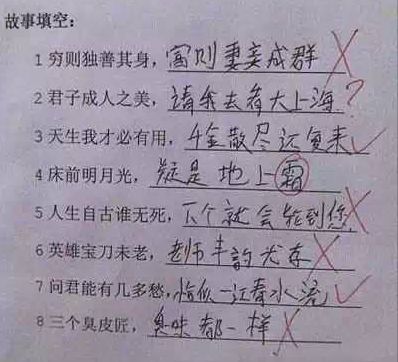 故事填空：
1 穷则独善其身，富则妻妾成群
2 君子成人之美，请我去看大上海？
3 天生我才必有用，千金散尽还复来
4 床前明月光，疑是地上霜
5 人生自古谁无死，下个就会轮到您
6 英雄宝刀未老，老师丰韵尤存
7 问君能有几多愁，恰似一江春水流
8 三个臭皮匠，臭味都一样